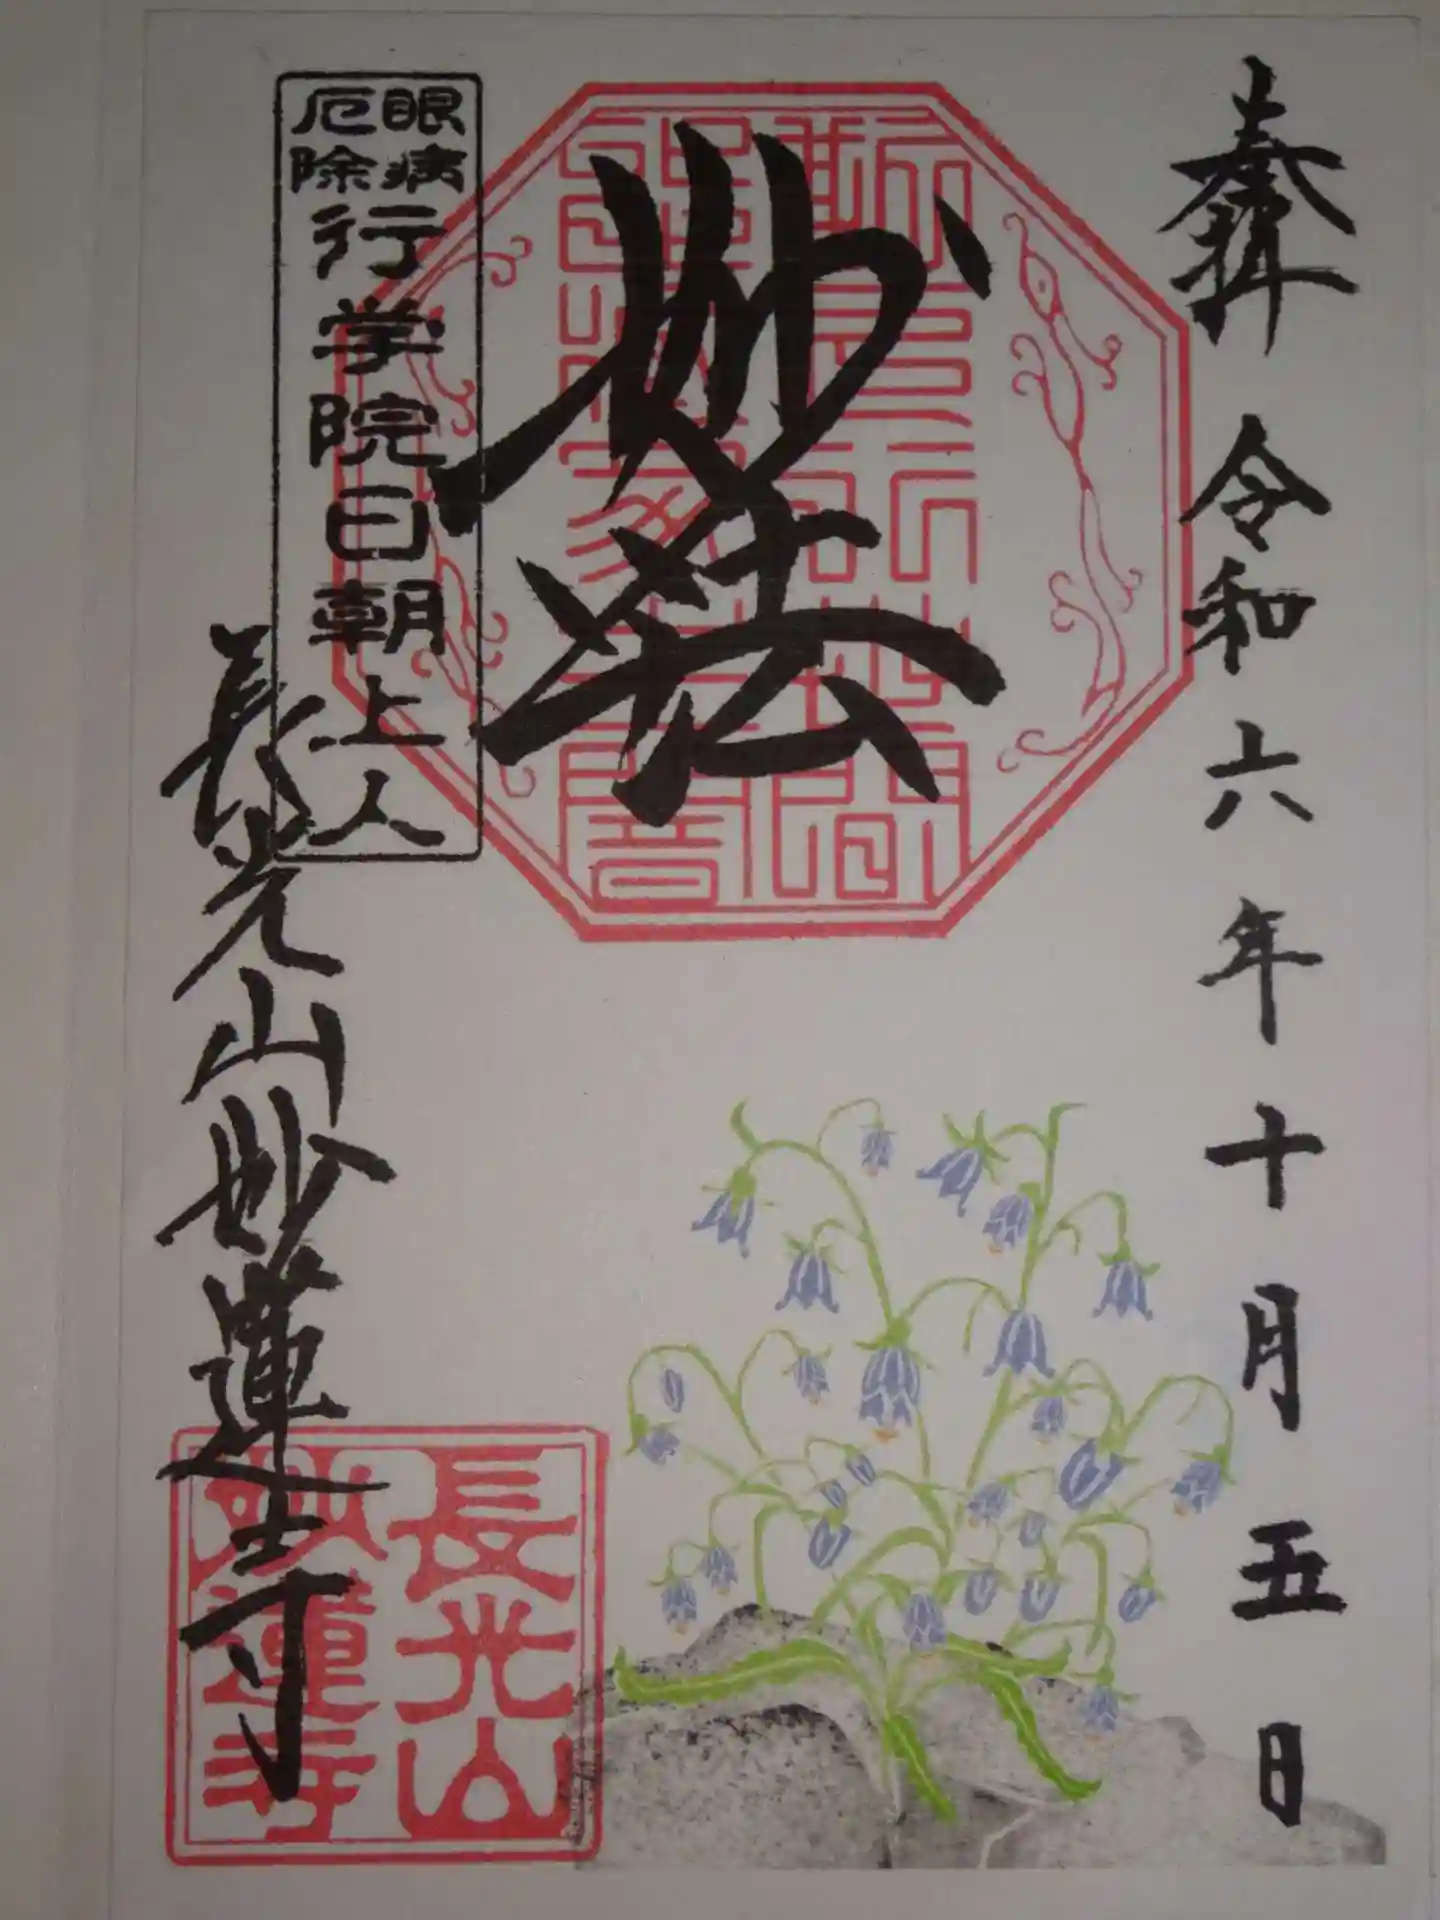 奉拝　令和六年十月五日
妙法
眼病
厄除
行学院日朝上人
長光山妙蓮寺
長光山
妙蓮寺